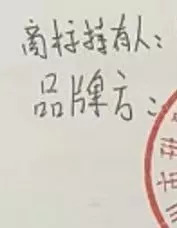 商标持有人:
品牌方: